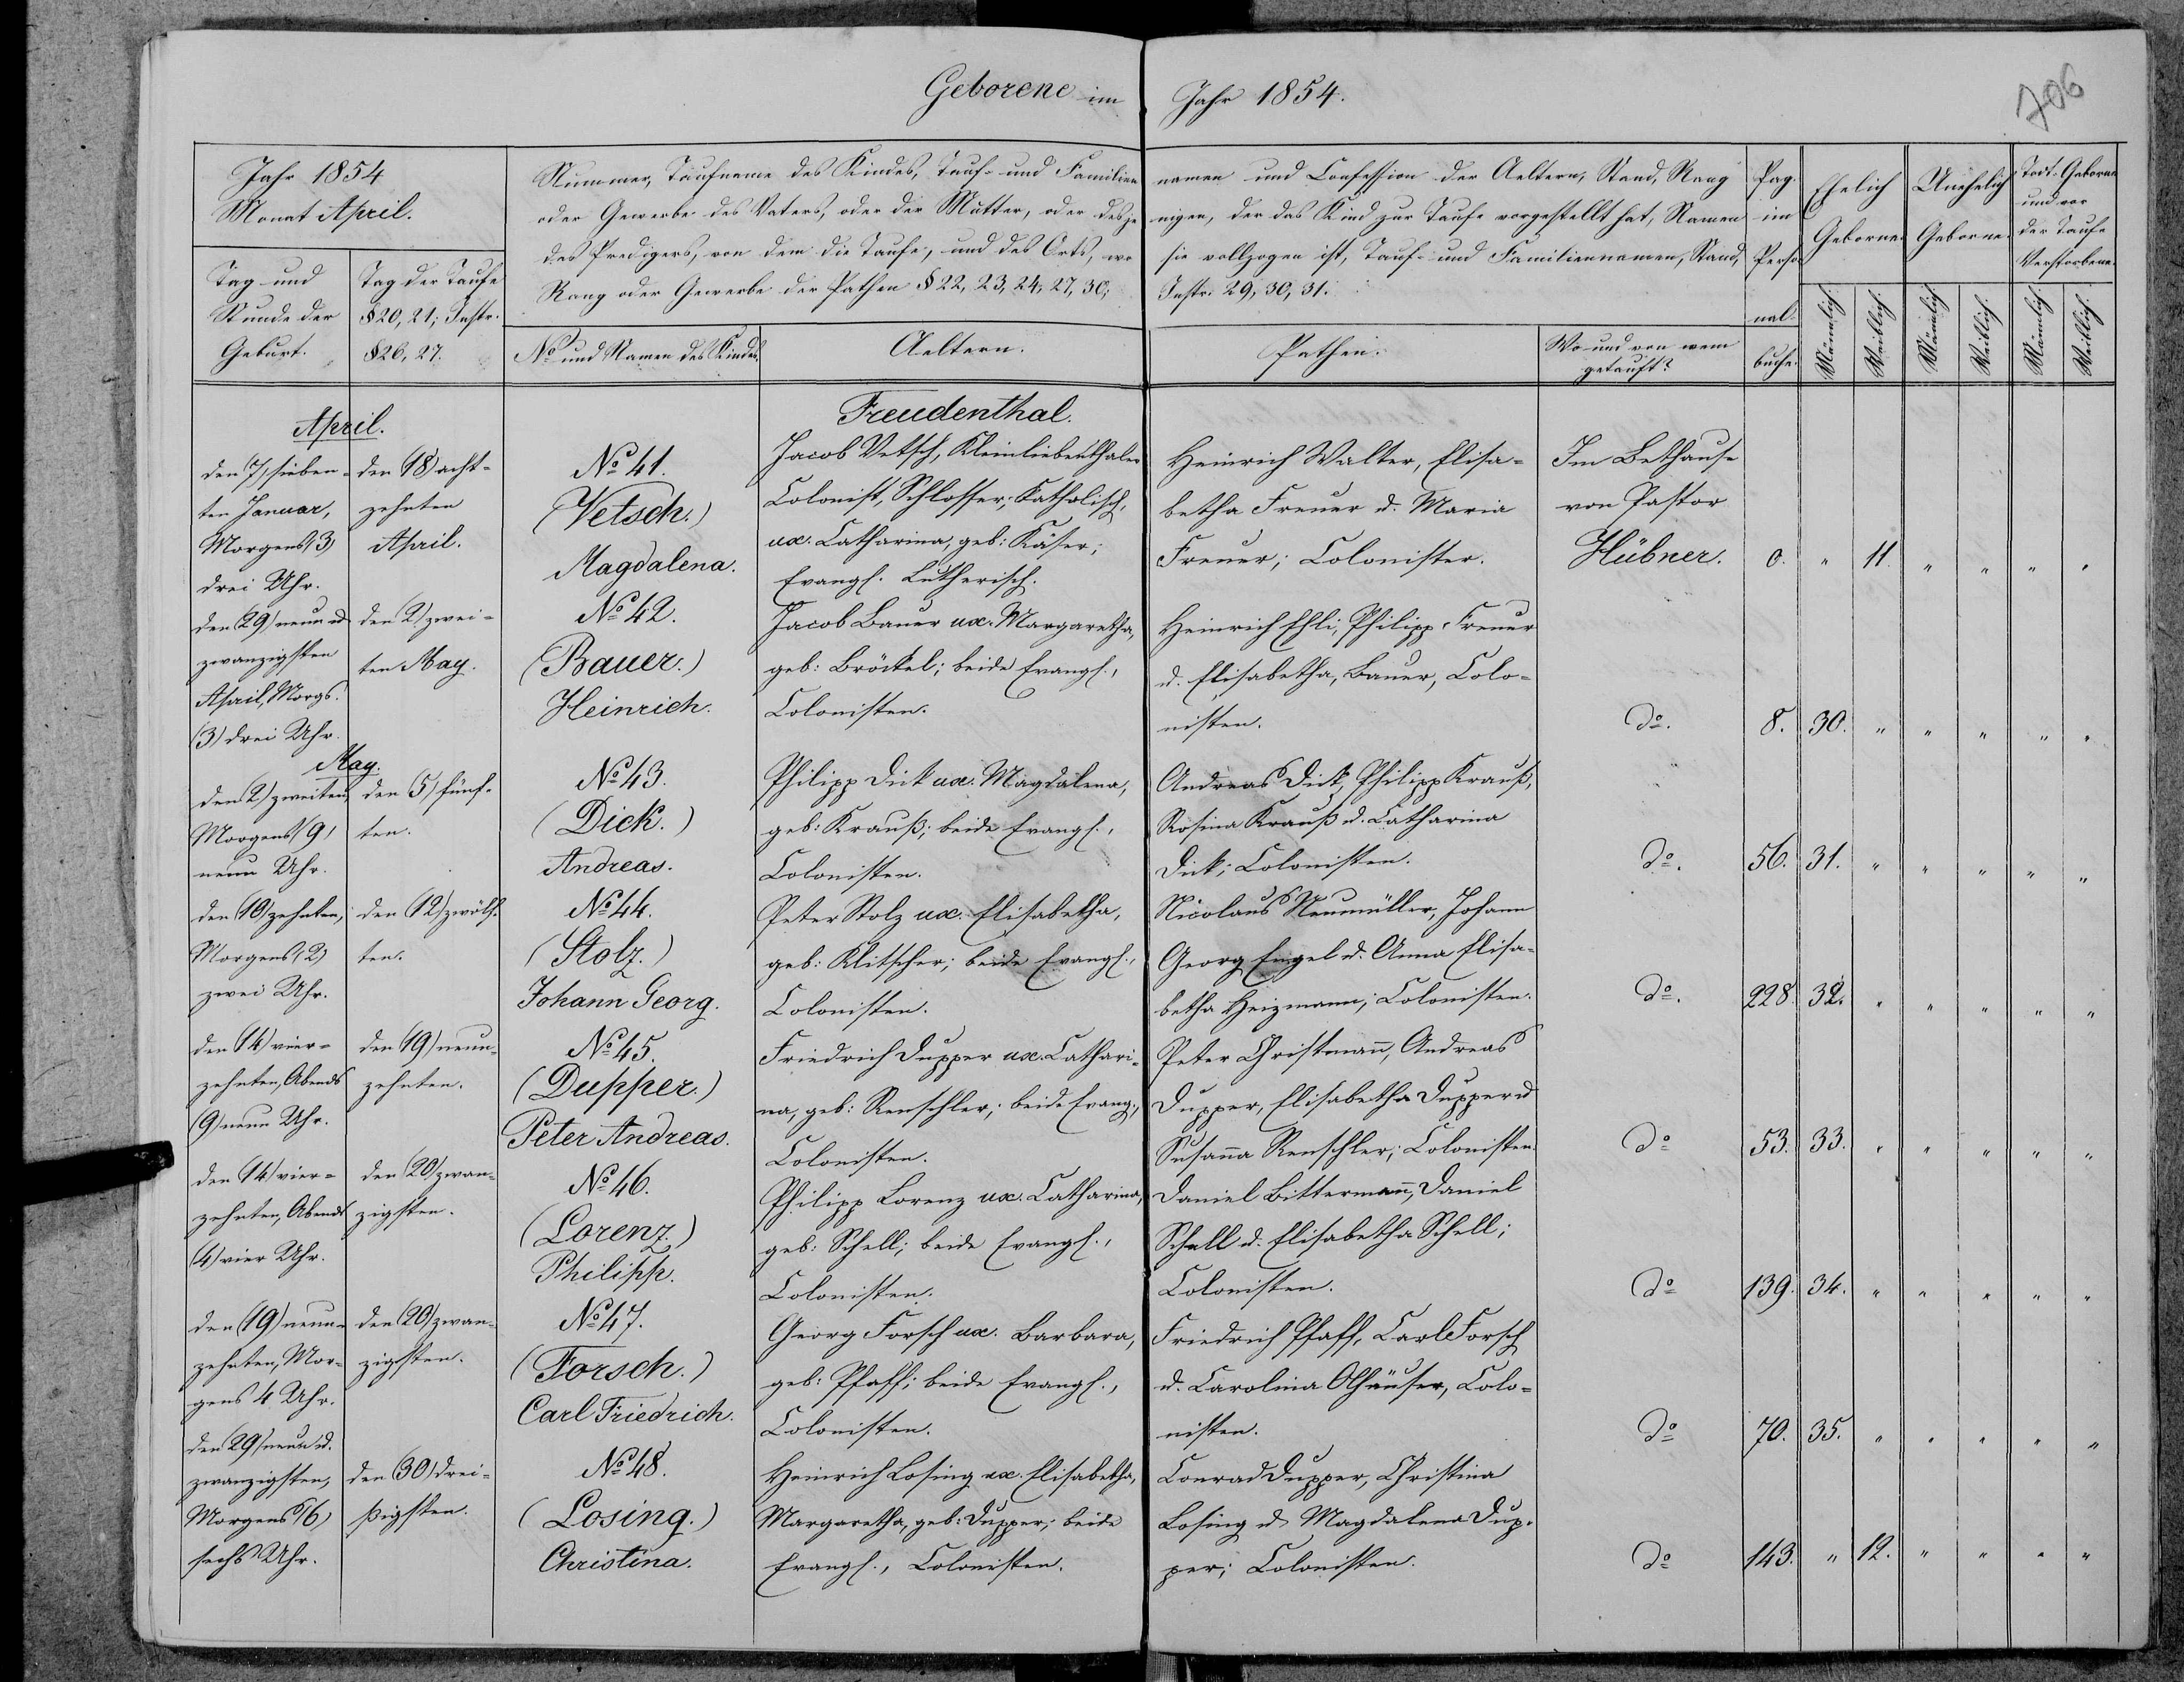 Geborene im Jahr 1854.
706
Jahr 1854
Monat April.
Tag und
Stunde der
Geburt.
Tag der Taufe
§20, 21; Instr.
§26, 27.
Nummer, Taufname des Kindes, Tauf- und Familien
namen und Confession der Aeltern, Stand, Rang
oder Gewerbe des Vaters, oder der Mutter, oder desje
nigen, der das Kind zur Taufe vorgestellt hat, Namen
des Predigers, von dem die Taufe, und des Orts, wo
sie vollzogen ist, Tauf- und Familiennamen, Stand,
Rang oder Gewerbe der Pathen §22, 23, 24, 27, 30;
Instr. 29, 30, 31.
No und Namen des Kindes.
Aeltern.
Pathen.
Wo und von wem
getauft?
Pag.
im
Perso
nal-
buche.
Ehelich
Geborne.
Unehelich
Geborne.
Todt-Geborne
und vor
der Taufe
Verstorbene.
Männlich.
Weiblich.
Männlich.
Weiblich.
Männlich.
Weiblich.
Freudenthal.
April.
den (7) sieben-
ten Januar,
Morgens (3)
drei Uhr.
den (18) acht-
zehnten
April.
No 41.
(Vetsch.)
Magdalena.
Jacob Vetsch, Kleinliebenthaler
Colonist, Schlosser; Katholisch,
ux. Catharina, geb: Käser;
Evangl. Lutherisch.
Heinrich Walter, Elisa-
betha Freuer u. Maria
Freuer; Colonister.
Im Bethause
von Pastor
Hübner.
0. " 11. " " " "
den (29) neun u
zwanzigsten
April, Morgs.
(3) drei Uhr.
den (2) zwei-
ten May.
No 42.
(Bauer.)
Heinrich.
Jacob Bauer ux. Margaretha,
geb: Bröckel; beide Evangl.,
Colonisten.
Heinrich Ehli, Philipp Freuer
u. Elisabetha, Bauer, Colo-
nisten.
do. 8. 30. " " " " "
May.
den (2) zweiten,
Morgens (9)
neun Uhr.
den (5) fünf-
ten.
No 43.
(Dick.)
Andreas.
Philipp Dick ux. Magdalena,
geb: Krauß; beide Evangl.,
Colonisten.
Andreas Dick, Philipp Krauß,
Rosina Krauß u. Catharina
Dick; Colonisten.
do. 56. 31. " " " " "
den (10) zehnten,
Morgens (2)
zwei Uhr.
den (12) zwölf-
ten.
No 44.
(Stolz.)
Johann Georg.
Peter Stolz ux. Elisabetha,
geb: Klitscher; beide Evangl.,
Colonisten.
Nicolaus Neumüller, Johann
Georg Engel u. Anna Elisa-
betha Heizmann; Colonisten.
do. 228. 32. " " " " "
den (14) vier-
zehnten, Abends
(9) neun Uhr.
den (19) neun-
zehnten.
No 45.
(Dupper.)
Peter Andreas.
Friedrich Dupper ux. Cathari-
na, geb: Renschler; beide Evang.,
Colonisten.
Peter Christmann, Andreas
Dupper, Elisabetha Dupper u
Susanna Renschler; Colonisten.
do 53. 33. " " " " "
den (14) vier-
zehnten, Abends
(4) vier Uhr.
den (20) zwan-
zigsten.
No 46.
(Lorenz.)
Philipp.
Philipp Lorenz ux. Catharina,
geb: Schell; beide Evangl.,
Colonisten.
Daniel Bittermann, Daniel
Schell u. Elisabetha Schell;
Colonisten.
do 139. 34. " " " " "
den (19) neun-
zehnten, Mor-
gens 4 Uhr.
den (20) zwan-
zigsten.
No 47.
(Forsch.)
Carl Friedrich.
Georg Forsch ux. Barbara,
geb: Pfaff; beide Evangl.,
Colonisten.
Friedrich Pfaff, Carl Forsch
u. Carolina Olhäuser, Colo-
nisten.
do 70. 35. " " " " "
den 29) neun u.
zwanzigsten,
Morgens (6)
sechs Uhr.
den (30) drei-
ßigsten.
No 48.
(Losing.)
Christina.
Heinrich Losing ux. Elisabetha,
Margaretha, geb: Dupper; beide
Evangl., Colonisten.
Conrad Dupper, Christina
Losing u Magdalena Dup-
per; Colonisten.
do 143. " 12. " " " "